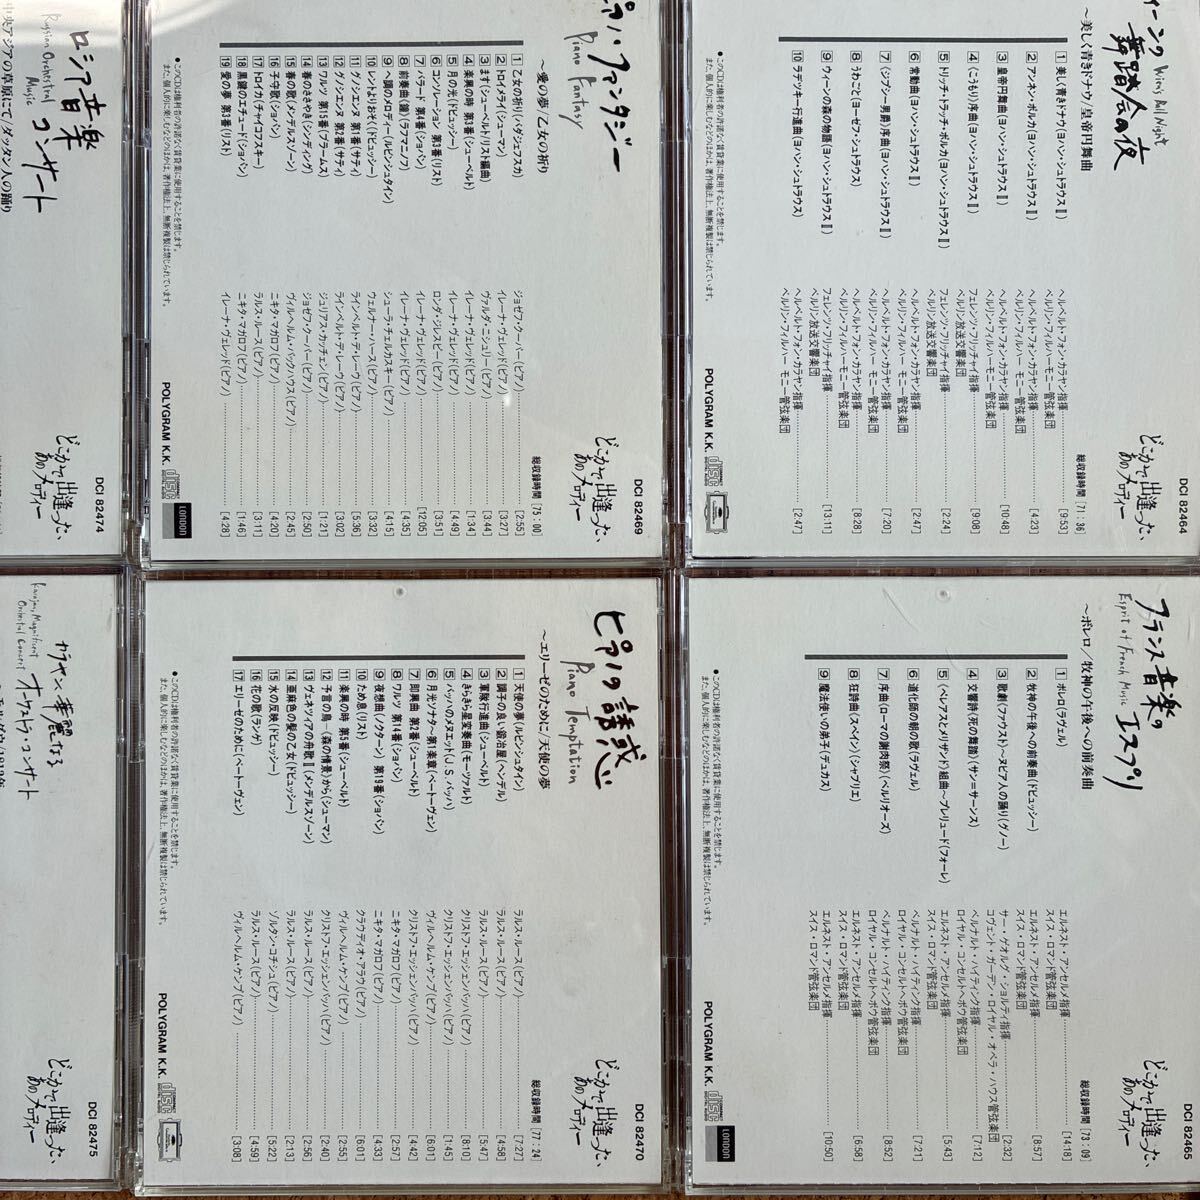 ロシア音楽
コンサート
Russian Orchestral
Music
中央アジアの草原にて/ダッタン人の踊り
DCI 82474
どこかで出逢った、
あのメロディー
ピアノ・ファンタジー
Piano Fantasy
～愛の夢/乙女の祈り
DCI 82469
どこかで出逢った、
あのメロディー
総収録時間 [75:00]
1 乙女の祈り(バダジェフスカ) ジョゼフ・クーパー(ピアノ) [2:55]
2 トロイメライ(シューマン) イレーナ・ヴェレッド(ピアノ) [3:27]
3 ます(シューベルト/リスト編曲) ヴァルダ・ニシュリー(ピアノ) [3:44]
4 楽興の時 第3番(シューベルト) イレーナ・ヴェレッド(ピアノ) [1:34]
5 月の光(ドビュッシー) イレーナ・ヴェレッド(ピアノ) [4:49]
6 コンソレーション 第3番(リスト) ロンダ・ジレスピー(ピアノ) [3:51]
7 バラード 第4番(ショパン) イレーナ・ヴェレッド(ピアノ) [12:05]
8 前奏曲《鐘》(ラフマニノフ) イレーナ・ヴェレッド(ピアノ) [4:35]
9 ヘ調のメロディー(ルビンシュタイン) シューラ・チェルカスキー(ピアノ) [4:15]
10 レントより遅く(ドビュッシー) ウェルナー・ハース(ピアノ) [3:32]
11 グノシエンヌ 第1番(サティ) ラインベルト・デ・レーウ(ピアノ) [5:36]
12 グノシエンヌ 第2番(サティ) ラインベルト・デ・レーウ(ピアノ) [3:02]
13 ワルツ 第15番(ブラームス) ジュリアス・カッチェン(ピアノ) [1:21]
14 春のささやき(シンディング) ジョゼフ・クーパー(ピアノ) [2:50]
15 春の歌(メンデルスゾーン) ヴィルヘルム・バックハウス(ピアノ) [2:45]
16 子守歌(ショパン) ニキタ・マガロフ(ピアノ) [4:20]
17 トロイカ(チャイコフスキー) ラルス・ルース(ピアノ) [3:11]
18 黒鍵のエチュード(ショパン) ニキタ・マガロフ(ピアノ) [1:46]
19 愛の夢 第3番(リスト) イレーナ・ヴェレッド(ピアノ) [4:28]
●このCDは権利者の許諾なく賃貸業に使用することを禁じます。
また、個人的に楽しむなどのほかは、著作権法上、無断複製は禁じられています。
POLYGRAM K.K.
LONDON
ィーンの
舞踏会の夜
Wien's Ball Night
～美しく青きドナウ/皇帝円舞曲
DCI 82464
どこかで出逢った、
あのメロディー
総収録時間 [71:36]
1 美しく青きドナウ(ヨハン・シュトラウスⅡ) ヘルベルト・フォン・カラヤン指揮 [9:53]
ベルリン・フィルハーモニー管弦楽団
2 アンネン・ポルカ(ヨハン・シュトラウスⅡ) ヘルベルト・フォン・カラヤン指揮 [4:23]
ベルリン・フィルハーモニー管弦楽団
3 皇帝円舞曲(ヨハン・シュトラウスⅡ) ヘルベルト・フォン・カラヤン指揮 [10:48]
ベルリン・フィルハーモニー管弦楽団
4 《こうもり》序曲(ヨハン・シュトラウスⅡ) フェレンツ・フリッチャイ指揮 [9:08]
ベルリン放送交響楽団
5 トリッチ・トラッチ・ポルカ(ヨハン・シュトラウスⅡ) フェレンツ・フリッチャイ指揮 [2:24]
ベルリン放送交響楽団
6 常動曲(ヨハン・シュトラウスⅡ) ヘルベルト・フォン・カラヤン指揮 [2:47]
ベルリン・フィルハーモニー管弦楽団
7 《ジプシー男爵》序曲(ヨハン・シュトラウスⅡ) ヘルベルト・フォン・カラヤン指揮 [7:20]
ベルリン・フィルハーモニー管弦楽団
8 うわごと(ヨーゼフ・シュトラウス) ヘルベルト・フォン・カラヤン指揮 [8:28]
ベルリン・フィルハーモニー管弦楽団
9 ウィーンの森の物語(ヨハン・シュトラウスⅡ) フェレンツ・フリッチャイ指揮 [13:11]
ベルリン放送交響楽団
10 ラデツキー行進曲(ヨハン・シュトラウス) ヘルベルト・フォン・カラヤン指揮 [2:47]
ベルリン・フィルハーモニー管弦楽団
●このCDは権利者の許諾なく賃貸業に使用することを禁じます。
また、個人的に楽しむなどのほかは、著作権法上、無断複製は禁じられています。
POLYGRAM K.K.
カラヤン・華麗なる
オーケストラ・コンサート
Karajan, Magnificent
Oriental Concert
DCI 82475
どこかで出逢った、
あのメロディー
ピアノの誘惑
Piano Temptation
～エリーゼのために/天使の夢
DCI 82470
どこかで出逢った、
あのメロディー
総収録時間 [77:24]
1 天使の夢(ルビンシュタイン) ラルス・ルース(ピアノ) [7:27]
2 調子の良い鍛冶屋(ヘンデル) ラルス・ルース(ピアノ) [4:58]
3 軍隊行進曲(シューベルト) ラルス・ルース(ピアノ) [5:47]
4 きらきら星変奏曲(モーツァルト) クリストフ・エッシェンバッハ(ピアノ) [8:10]
5 バッハのメヌエット(J.S.バッハ) クリストフ・エッシェンバッハ(ピアノ) [1:45]
6 月光ソナタ～第1楽章(ベートーヴェン) ヴィルヘルム・ケンプ(ピアノ) [6:01]
7 即興曲 第3番(シューベルト) クリストフ・エッシェンバッハ(ピアノ) [4:42]
8 ワルツ 第14番(ショパン) ニキタ・マガロフ(ピアノ) [2:57]
9 夜想曲(ノクターン) 第13番(ショパン) ニキタ・マガロフ(ピアノ) [4:33]
10 ため息(リスト) クラウディオ・アラウ(ピアノ) [6:01]
11 楽興の時 第5番(シューベルト) ヴィルヘルム・ケンプ(ピアノ) [2:55]
12 予言の鳥～《森の情景》から(シューマン) クリストフ・エッシェンバッハ(ピアノ) [2:40]
13 ヴェネツィアの舟歌Ⅱ(メンデルスゾーン) ラルス・ルース(ピアノ) [2:56]
14 亜麻色の髪の乙女(ドビュッシー) ラルス・ルース(ピアノ) [2:13]
15 水の反映(ドビュッシー) ゾルタン・コチシュ(ピアノ) [5:22]
16 花の歌(ランゲ) ラルス・ルース(ピアノ) [4:59]
17 エリーゼのために(ベートーヴェン) ヴィルヘルム・ケンプ(ピアノ) [3:08]
●このCDは権利者の許諾なく賃貸業に使用することを禁じます。
また、個人的に楽しむなどのほかは、著作権法上、無断複製は禁じられています。
POLYGRAM K.K.
フランス音楽の
エスプリ
Esprit of French Music
～ボレロ/牧神の午後への前奏曲
DCI 82465
どこかで出逢った、
あのメロディー
総収録時間 [73:09]
1 ボレロ(ラヴェル) エルネスト・アンセルメ指揮 [14:18]
スイス・ロマンド管弦楽団
2 牧神の午後への前奏曲(ドビュッシー) エルネスト・アンセルメ指揮 [8:57]
スイス・ロマンド管弦楽団
3 歌劇《ファウスト》～ヌビア人の踊り(グノー) サー・ゲオルグ・ショルティ指揮 [2:32]
コヴェント・ガーデン・ロイヤル・オペラ・ハウス管弦楽団
4 交響詩《死の舞踏》(サン=サーンス) ベルナルト・ハイティンク指揮 [7:12]
ロイヤル・コンセルトヘボウ管弦楽団
5 《ペレアスとメリザンド》組曲～プレリュード(フォーレ) エルネスト・アンセルメ指揮 [5:43]
スイス・ロマンド管弦楽団
6 道化師の朝の歌(ラヴェル) ベルナルト・ハイティンク指揮 [7:21]
ロイヤル・コンセルトヘボウ管弦楽団
7 序曲《ローマの謝肉祭》(ベルリオーズ) ベルナルト・ハイティンク指揮 [8:52]
ロイヤル・コンセルトヘボウ管弦楽団
8 狂詩曲《スペイン》(シャブリエ) エルネスト・アンセルメ指揮 [6:58]
スイス・ロマンド管弦楽団
9 魔法使いの弟子(デュカス) エルネスト・アンセルメ指揮 [10:50]
スイス・ロマンド管弦楽団
●このCDは権利者の許諾なく賃貸業に使用することを禁じます。
また、個人的に楽しむなどのほかは、著作権法上、無断複製は禁じられています。
POLYGRAM K.K.
LONDON